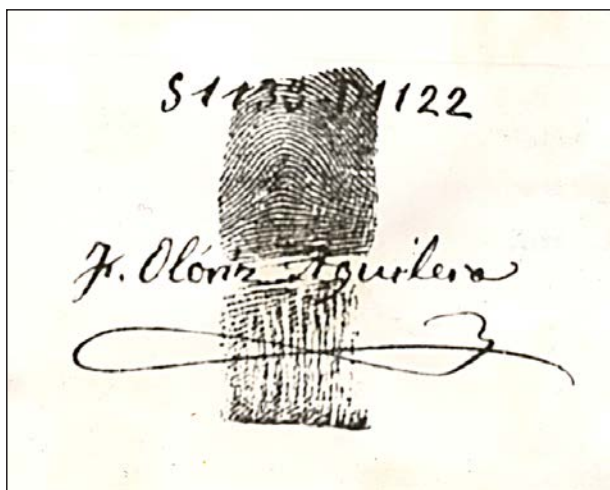 D1122
F. Olóriz Aguilera